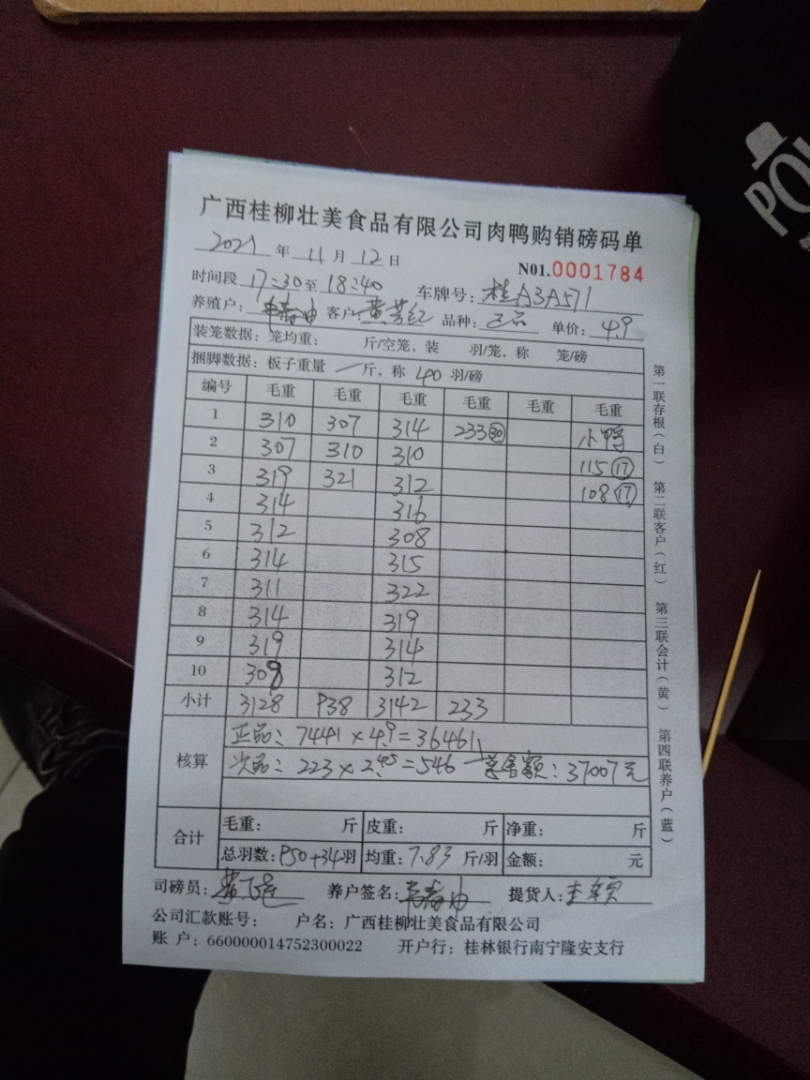 POW
广西桂柳壮美食品有限公司肉鸭购销磅码单
2021 年 11 月 12 日
N01.0001784
时间段 17:30 至 18:40 车牌号: 桂A3A571
养殖户: 客户: 黄芳红 品种: 正品 单价: 4.9
装笼数据: 笼均重: 斤/空笼, 装 羽/笼, 称 笼/磅
捆脚数据: 板子重量 — 斤, 称 40 羽/磅
编号 毛重 毛重 毛重 毛重 毛重 毛重
1 310 307 314 233㉚ 小鸭
2 307 310 310 115⑰
3 319 321 312 108⑰
4 314 316
5 312 308
6 314 315
7 311 322
8 314 319
9 319 314
10 308 312
小计 3128 938 3142 233
核算
正品: 7441×4.9=36461
次品: 223×2.45=546 总售额: 37007元
合计
毛重: 斤 皮重: 斤 净重: 斤
总羽数: 950+34羽 均重: 7.83 斤/羽 金额: 元
司磅员: 养户签名: 提货人:
公司汇款账号: 户名: 广西桂柳壮美食品有限公司
账 户: 660000014752300022 开户行: 桂林银行南宁隆安支行
第一联存根(白) 第二联客户(红) 第三联会计(黄) 第四联养户(蓝)